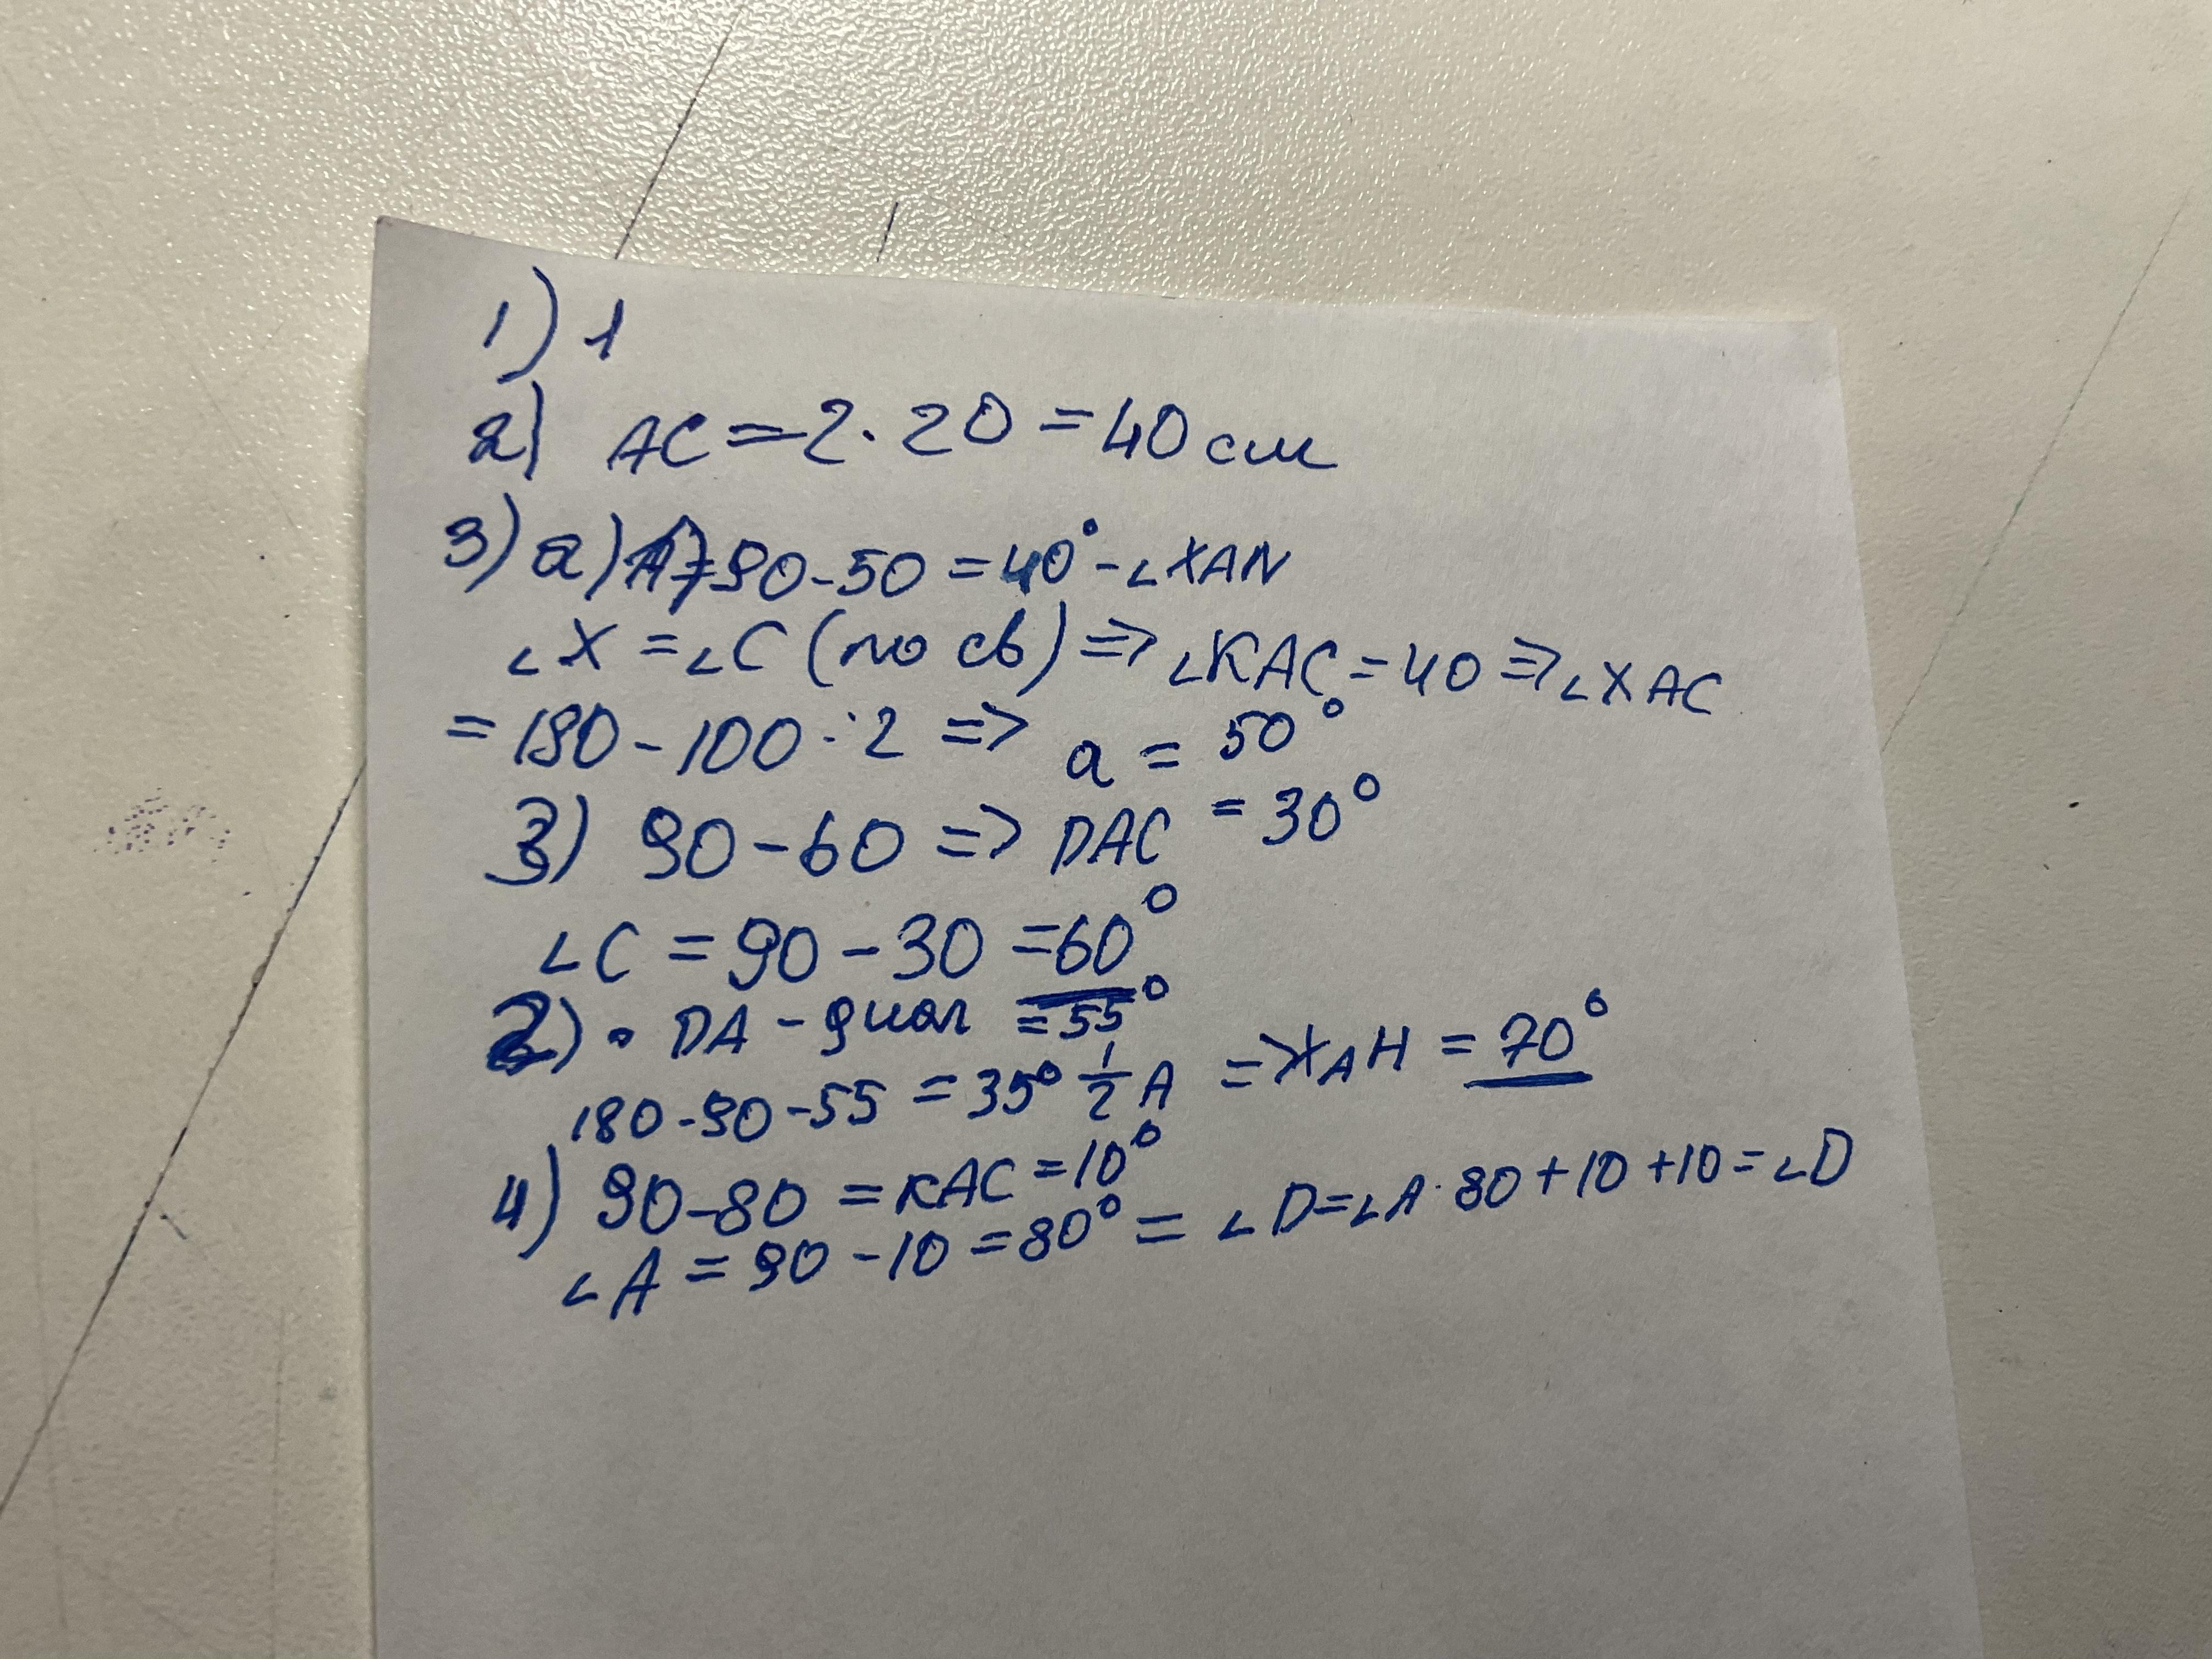 1) 1
2) AC = 2 · 20 = 40 см
3) а) 90 - 50 = 40° - ∠XAN
∠X = ∠C (по св) => ∠KAC = 40 => ∠XAC
= 180 - 100 : 2 => a = 50°
3) 90 - 60 => DAC = 30°
∠C = 90 - 30 = 60°
2) • DA - диаг = 55°
180 - 90 - 55 = 35° 1/2 A => XAH = 70°
4) 90 - 80 = KAC = 10°
∠A = 90 - 10 = 80° = ∠D = ∠A · 80 + 10 + 10 = ∠D